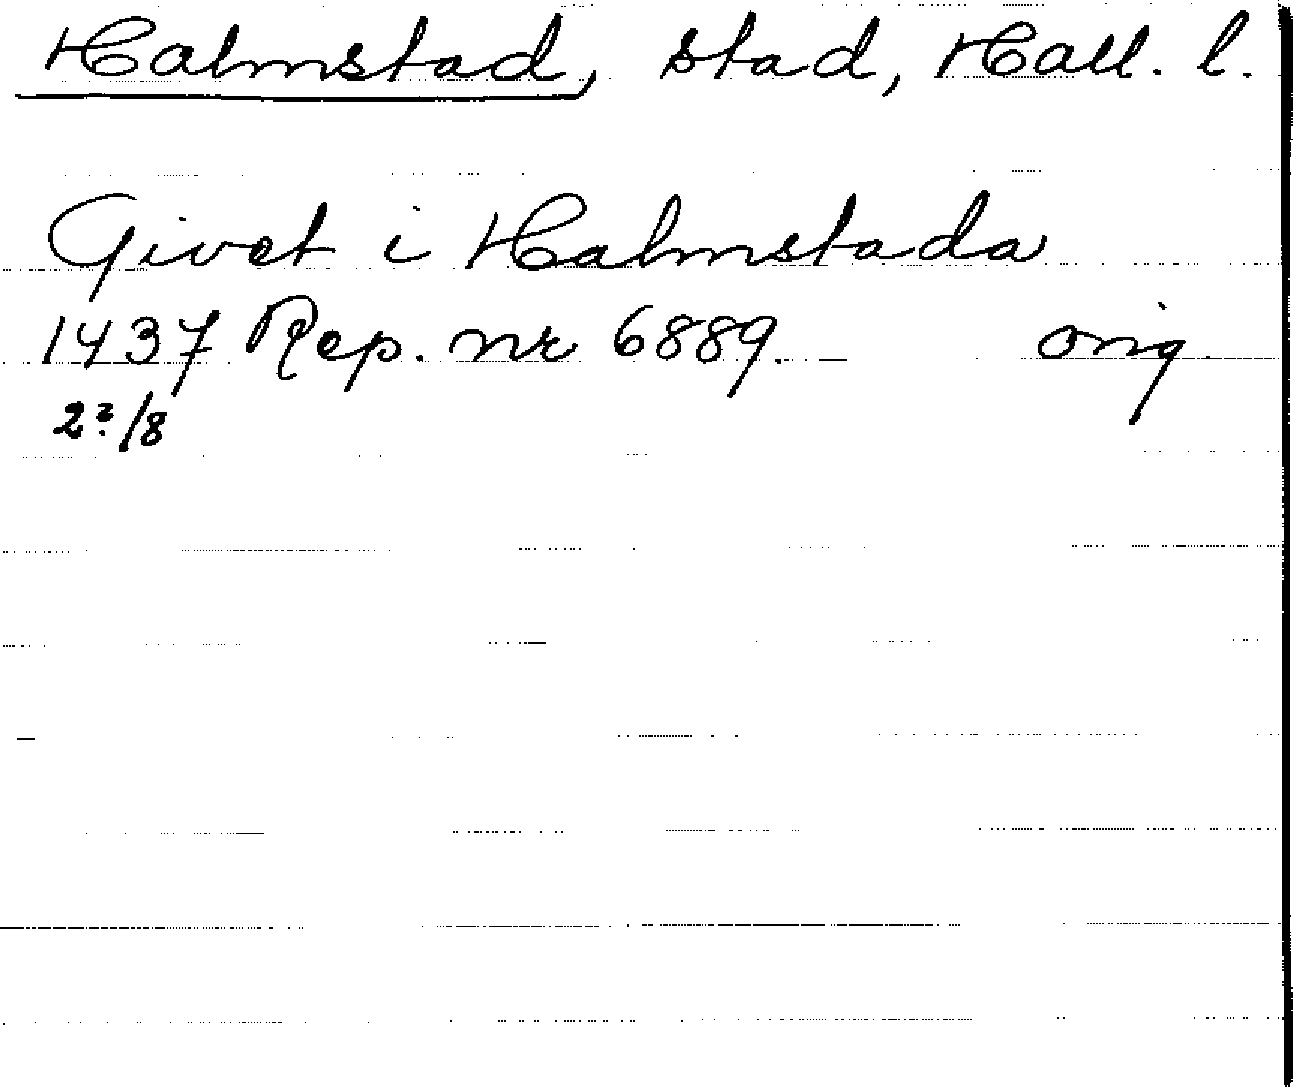 Halmstad, stad, Hall. l.
Givet i Halmstada
1437 Rep. nr 6889. orig
2?/8